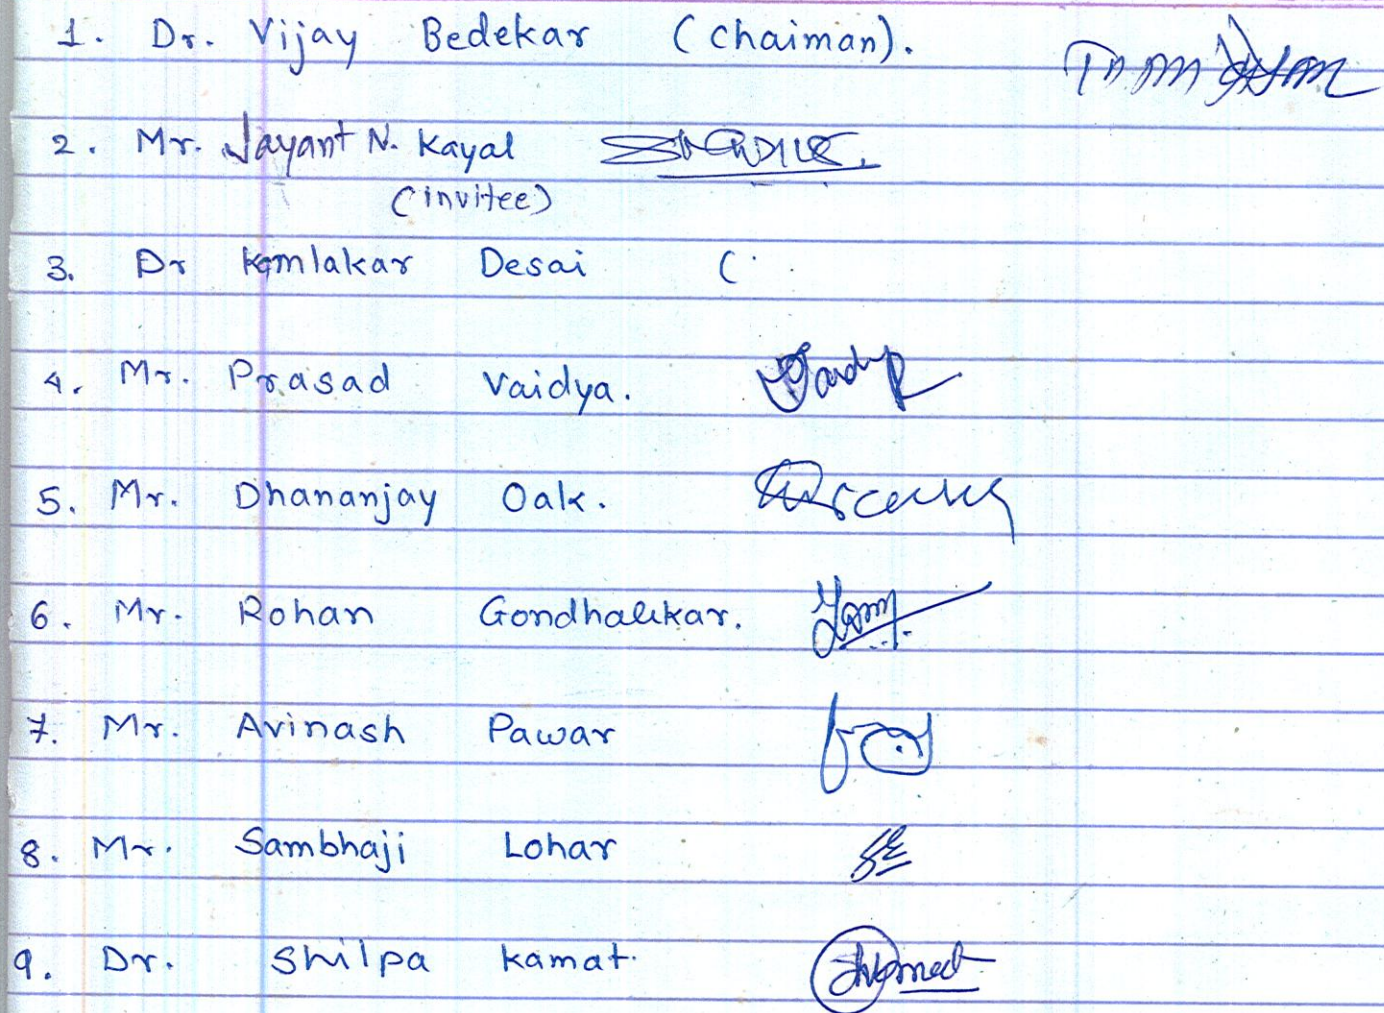 1. Dr. Vijay Bedekar (Chaiman).
2. Mr. Jayant N. Kayal
(invitee)
3. Dr Kamlakar Desai (
4. Mr. Prasad Vaidya.
5. Mr. Dhananjay Oak.
6. Mr. Rohan Gondhalekar.
7. Mr. Avinash Pawar
8. Mr. Sambhaji Lohar
9. Dr. Shilpa Kamat.